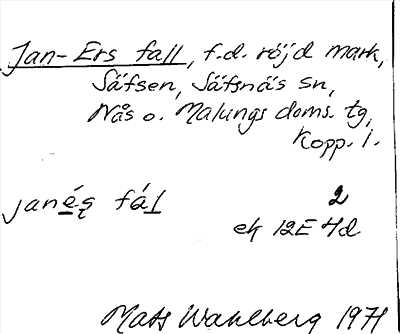 Jan-Ers fall, f.d. röjd mark,
Säfsen, Säfsnäs sn,
Nås o. Malungs doms. tg,
Kopp. l.
janés̹ fál
2
ek 12E 4d
Mats Wahlberg 1971